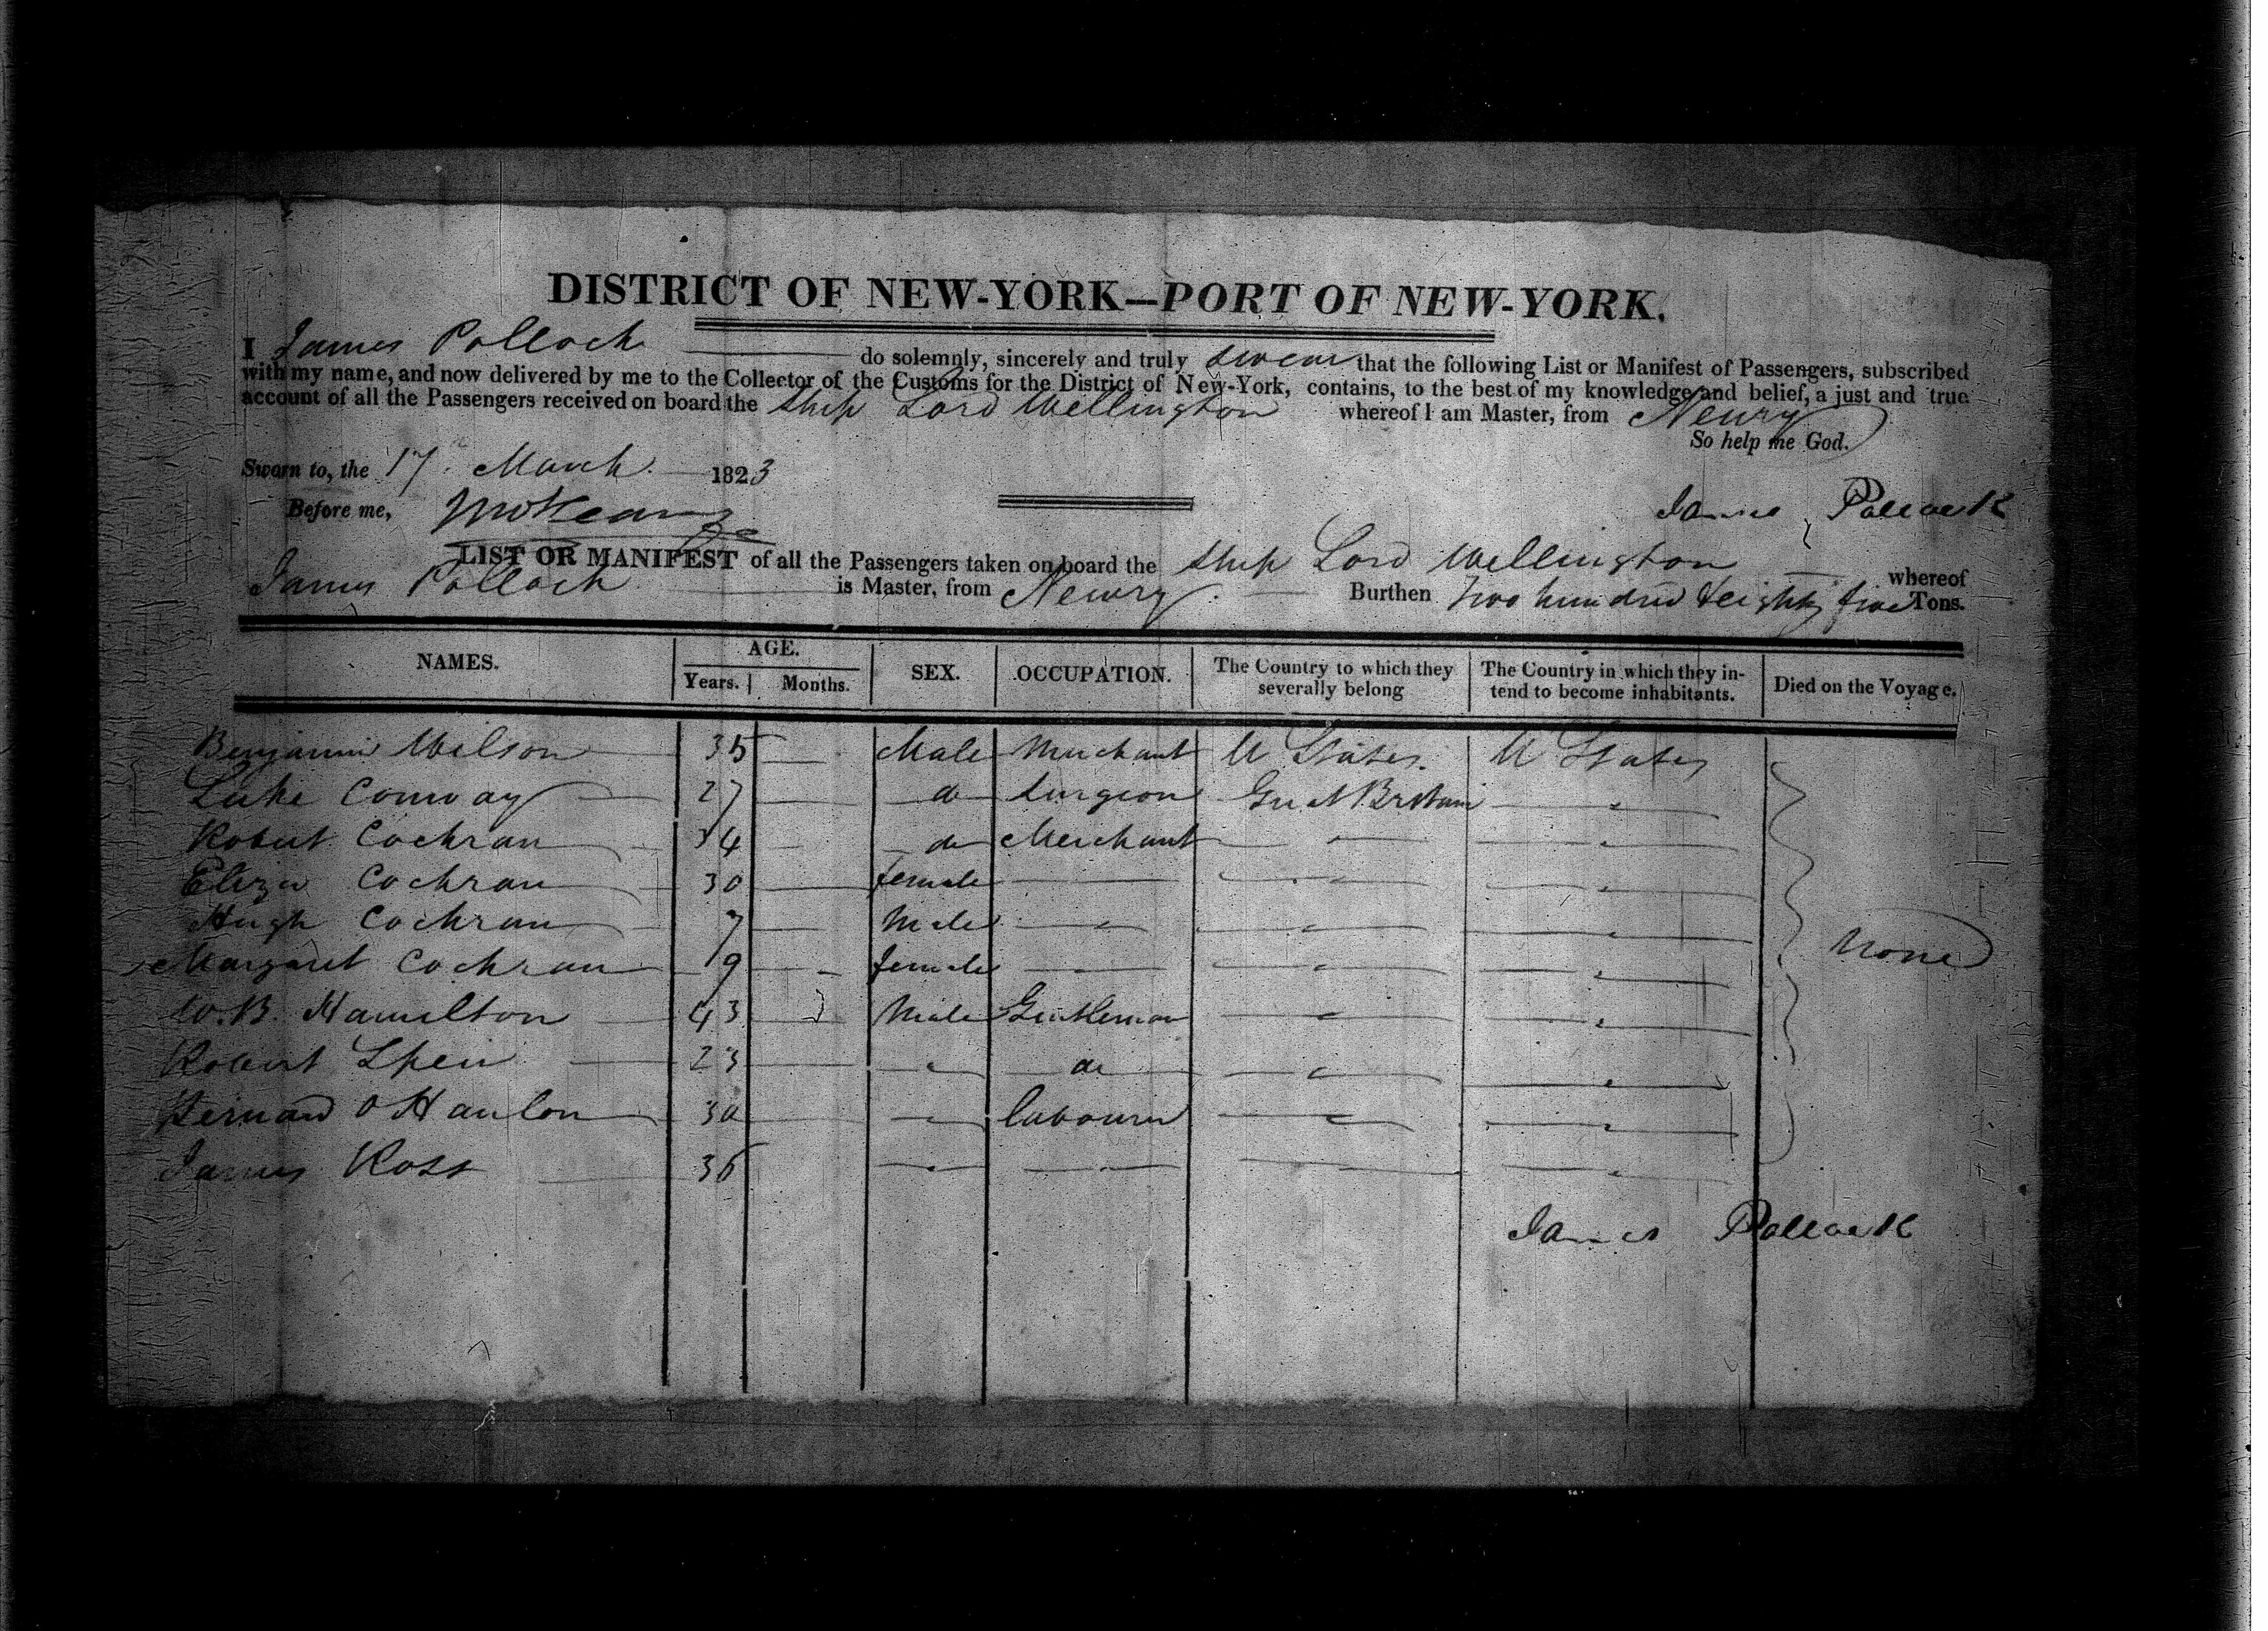 DISTRICT OF NEW-YORK—PORT OF NEW-YORK.
I James Pollock do solemnly, sincerely and truly swear that the following List or Manifest of Passengers, subscribed
with my name, and now delivered by me to the Collector of the Customs for the District of New-York, contains, to the best of my knowledge and belief, a just and true
account of all the Passengers received on board the Ship Lord Wellington whereof I am Master, from Newry
So help me God.
Sworn to, the 17 March 1823
Before me,
James Pollock
LIST OR MANIFEST of all the Passengers taken on board the Ship Lord Wellington whereof
James Pollock is Master, from Newry. Burthen Two hundred & eighty five Tons.
NAMES. AGE. Years. Months. SEX. OCCUPATION. The Country to which they severally belong The Country in which they intend to become inhabitants. Died on the Voyage.
Benjamin Wilson 35 — Male Merchant U States. U States
Luke Conway 27 — do Surgeon Great Britain — " —
Robert Cochran 34 — do Merchant — " — — " —
Eliza Cochran 30 — female — — " — — " —
Hugh Cochran 7 — Male — " — — " — — " —
Margaret Cochran 9 — female — — " — — " — None
W. B. Hamilton 43 Male Gentleman — " — — " —
Robert 23 — " — do — " — — " —
Bernard O Hanlon 30 — " — labourer — " — — " —
James Ross 36 — " — — " — — " — — " —
James Pollock